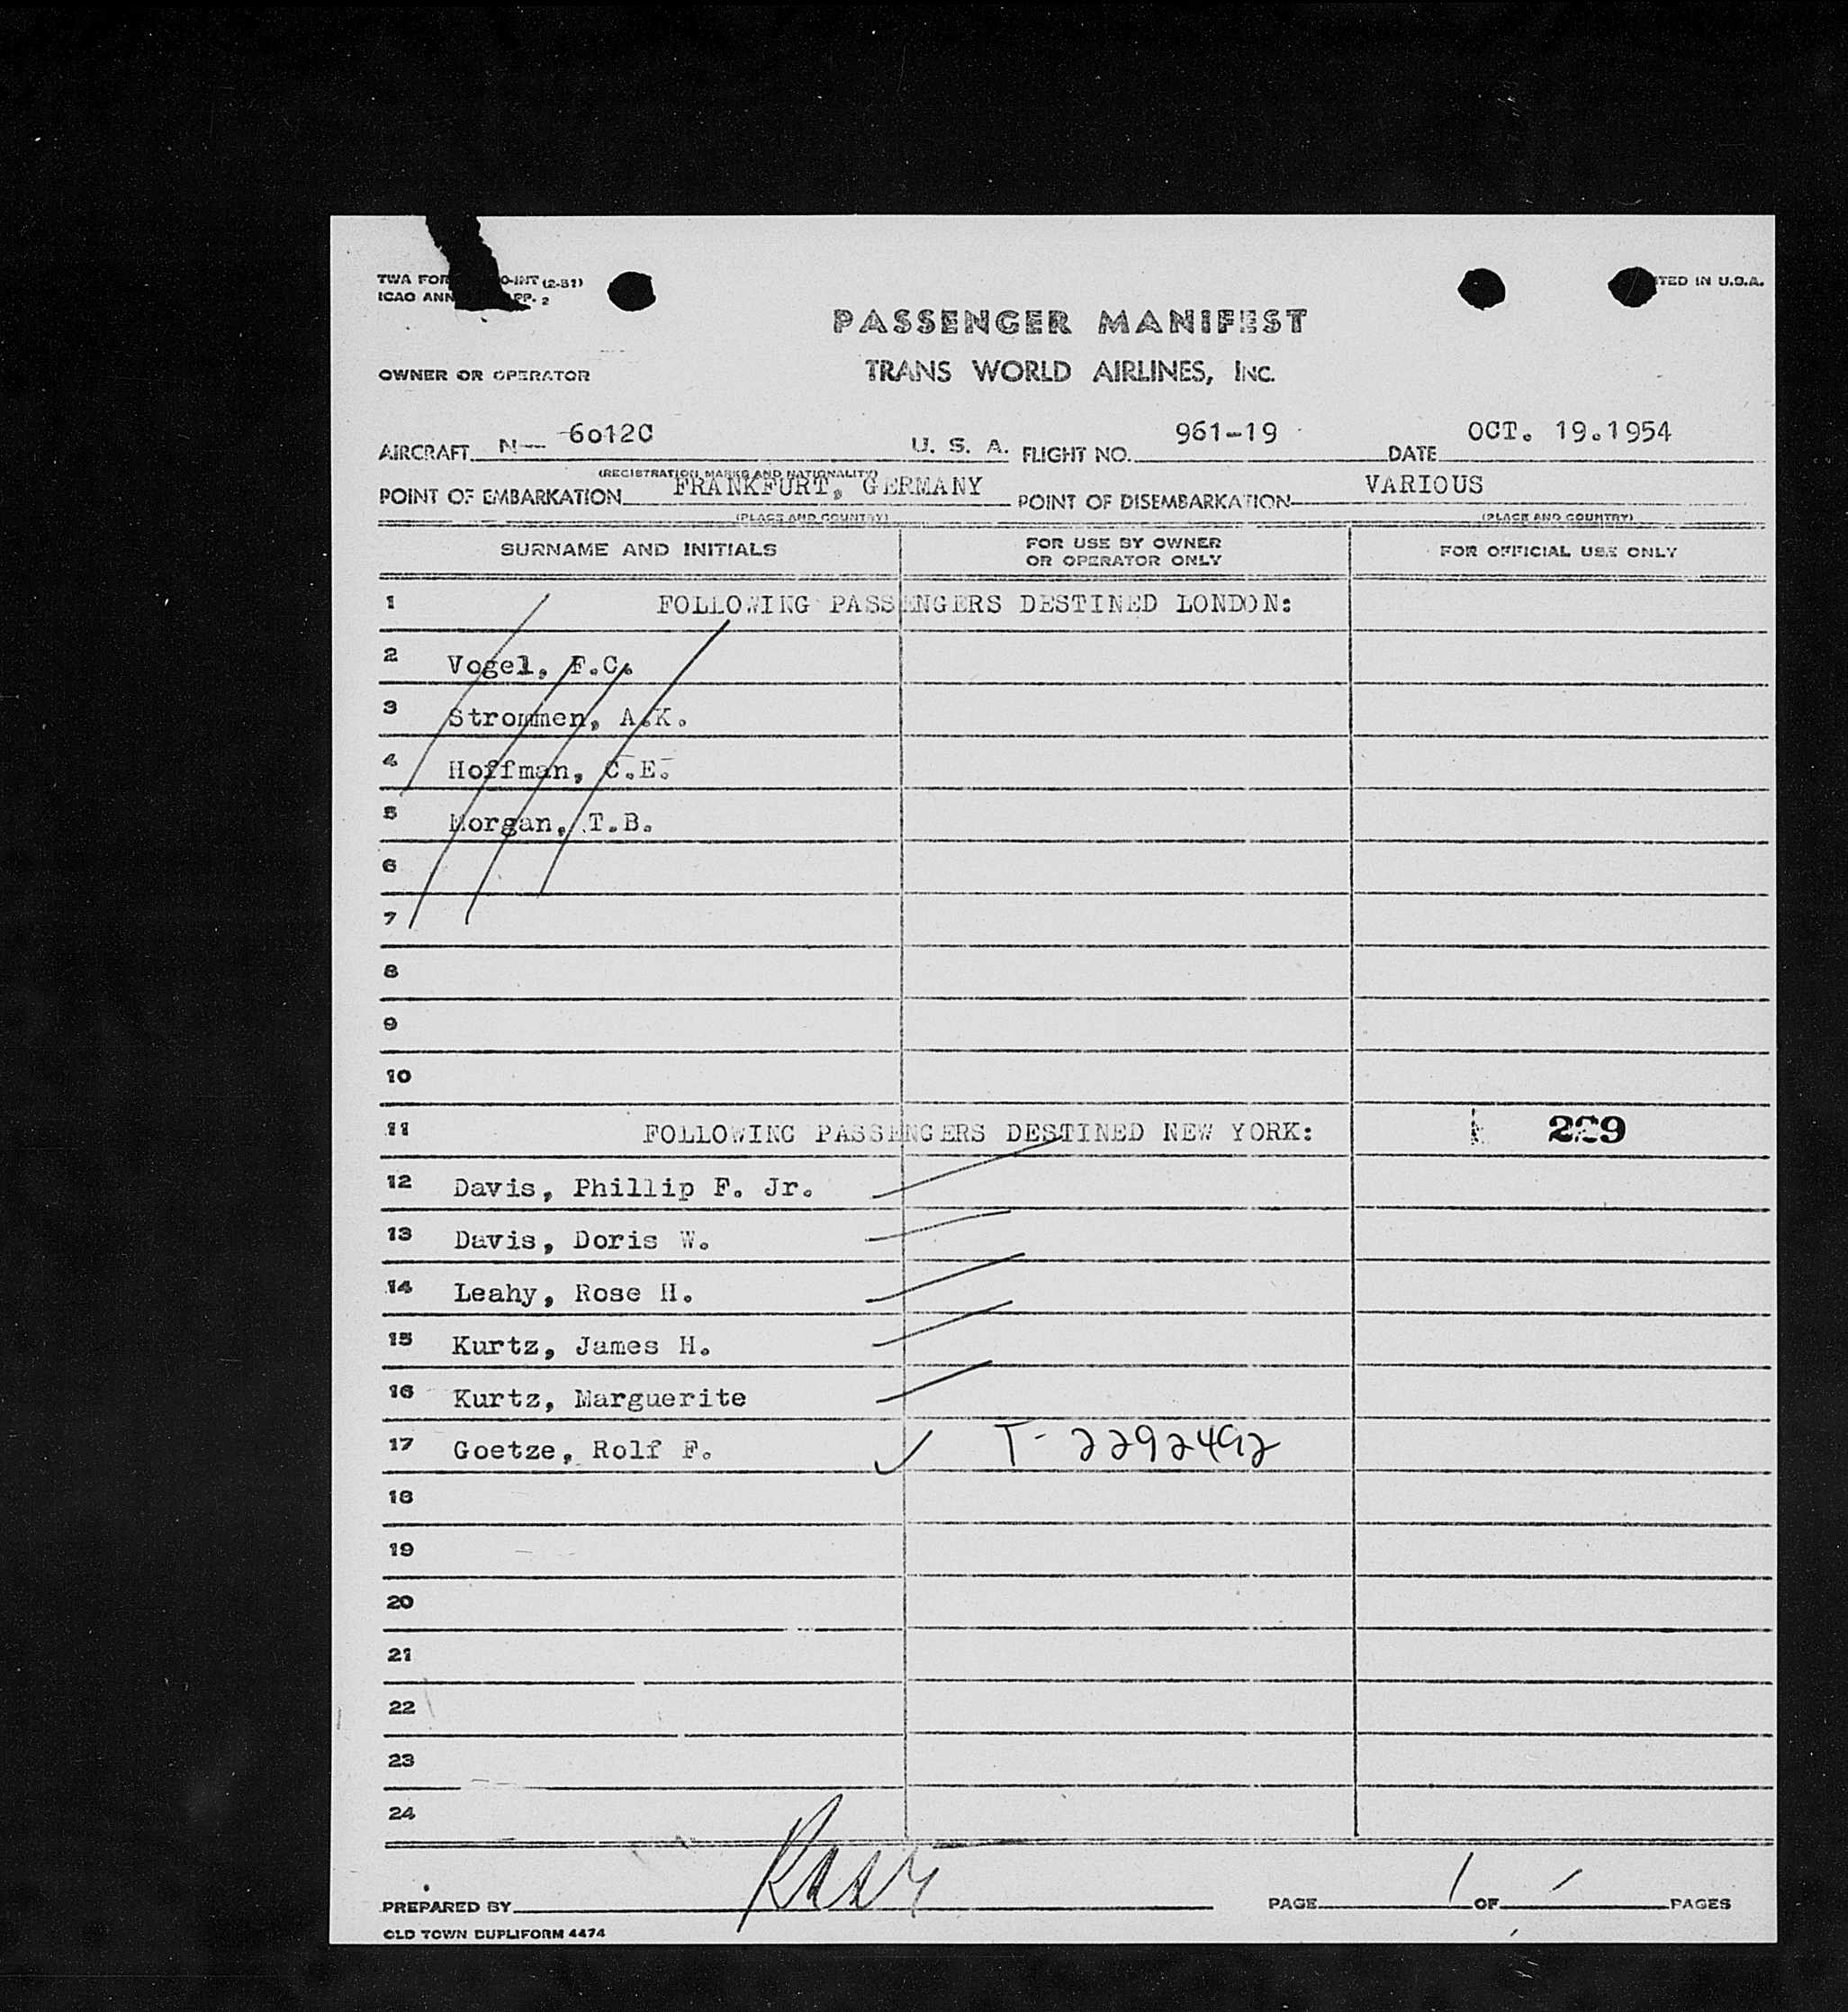 TWA FOR O-INT (2-51)
ICAO ANN PP. 2
TED IN U.S.A.
PASSENGER MANIFEST
OWNER OR OPERATOR TRANS WORLD AIRLINES, INC.
AIRCRAFT N— 6012C U. S. A. FLIGHT NO. 961-19 DATE OCT. 19.1954
(REGISTRATION MARKS AND NATIONALITY)
POINT OF EMBARKATION FRANKFURT, GERMANY POINT OF DISEMBARKATION VARIOUS
(PLACE AND COUNTRY) (PLACE AND COUNTRY)
SURNAME AND INITIALS FOR USE BY OWNER OR OPERATOR ONLY FOR OFFICIAL USE ONLY
1 FOLLOWING PASSENGERS DESTINED LONDON:
2 Vogel, F.C.
3 Strommen, A.K.
4 Hoffman, C.E.
5 Morgan, T.B.
6
7
8
9
10
11 FOLLOWING PASSENGERS DESTINED NEW YORK:
12 Davis, Phillip F. Jr.
13 Davis, Doris W.
14 Leahy, Rose H.
15 Kurtz, James H.
16 Kurtz, Marguerite
17 Goetze, Rolf F. T-2292492
18
19
20
21
22
23
24
PREPARED BY PAGE 1 OF 1 PAGES
OLD TOWN DUPLIFORM 4474